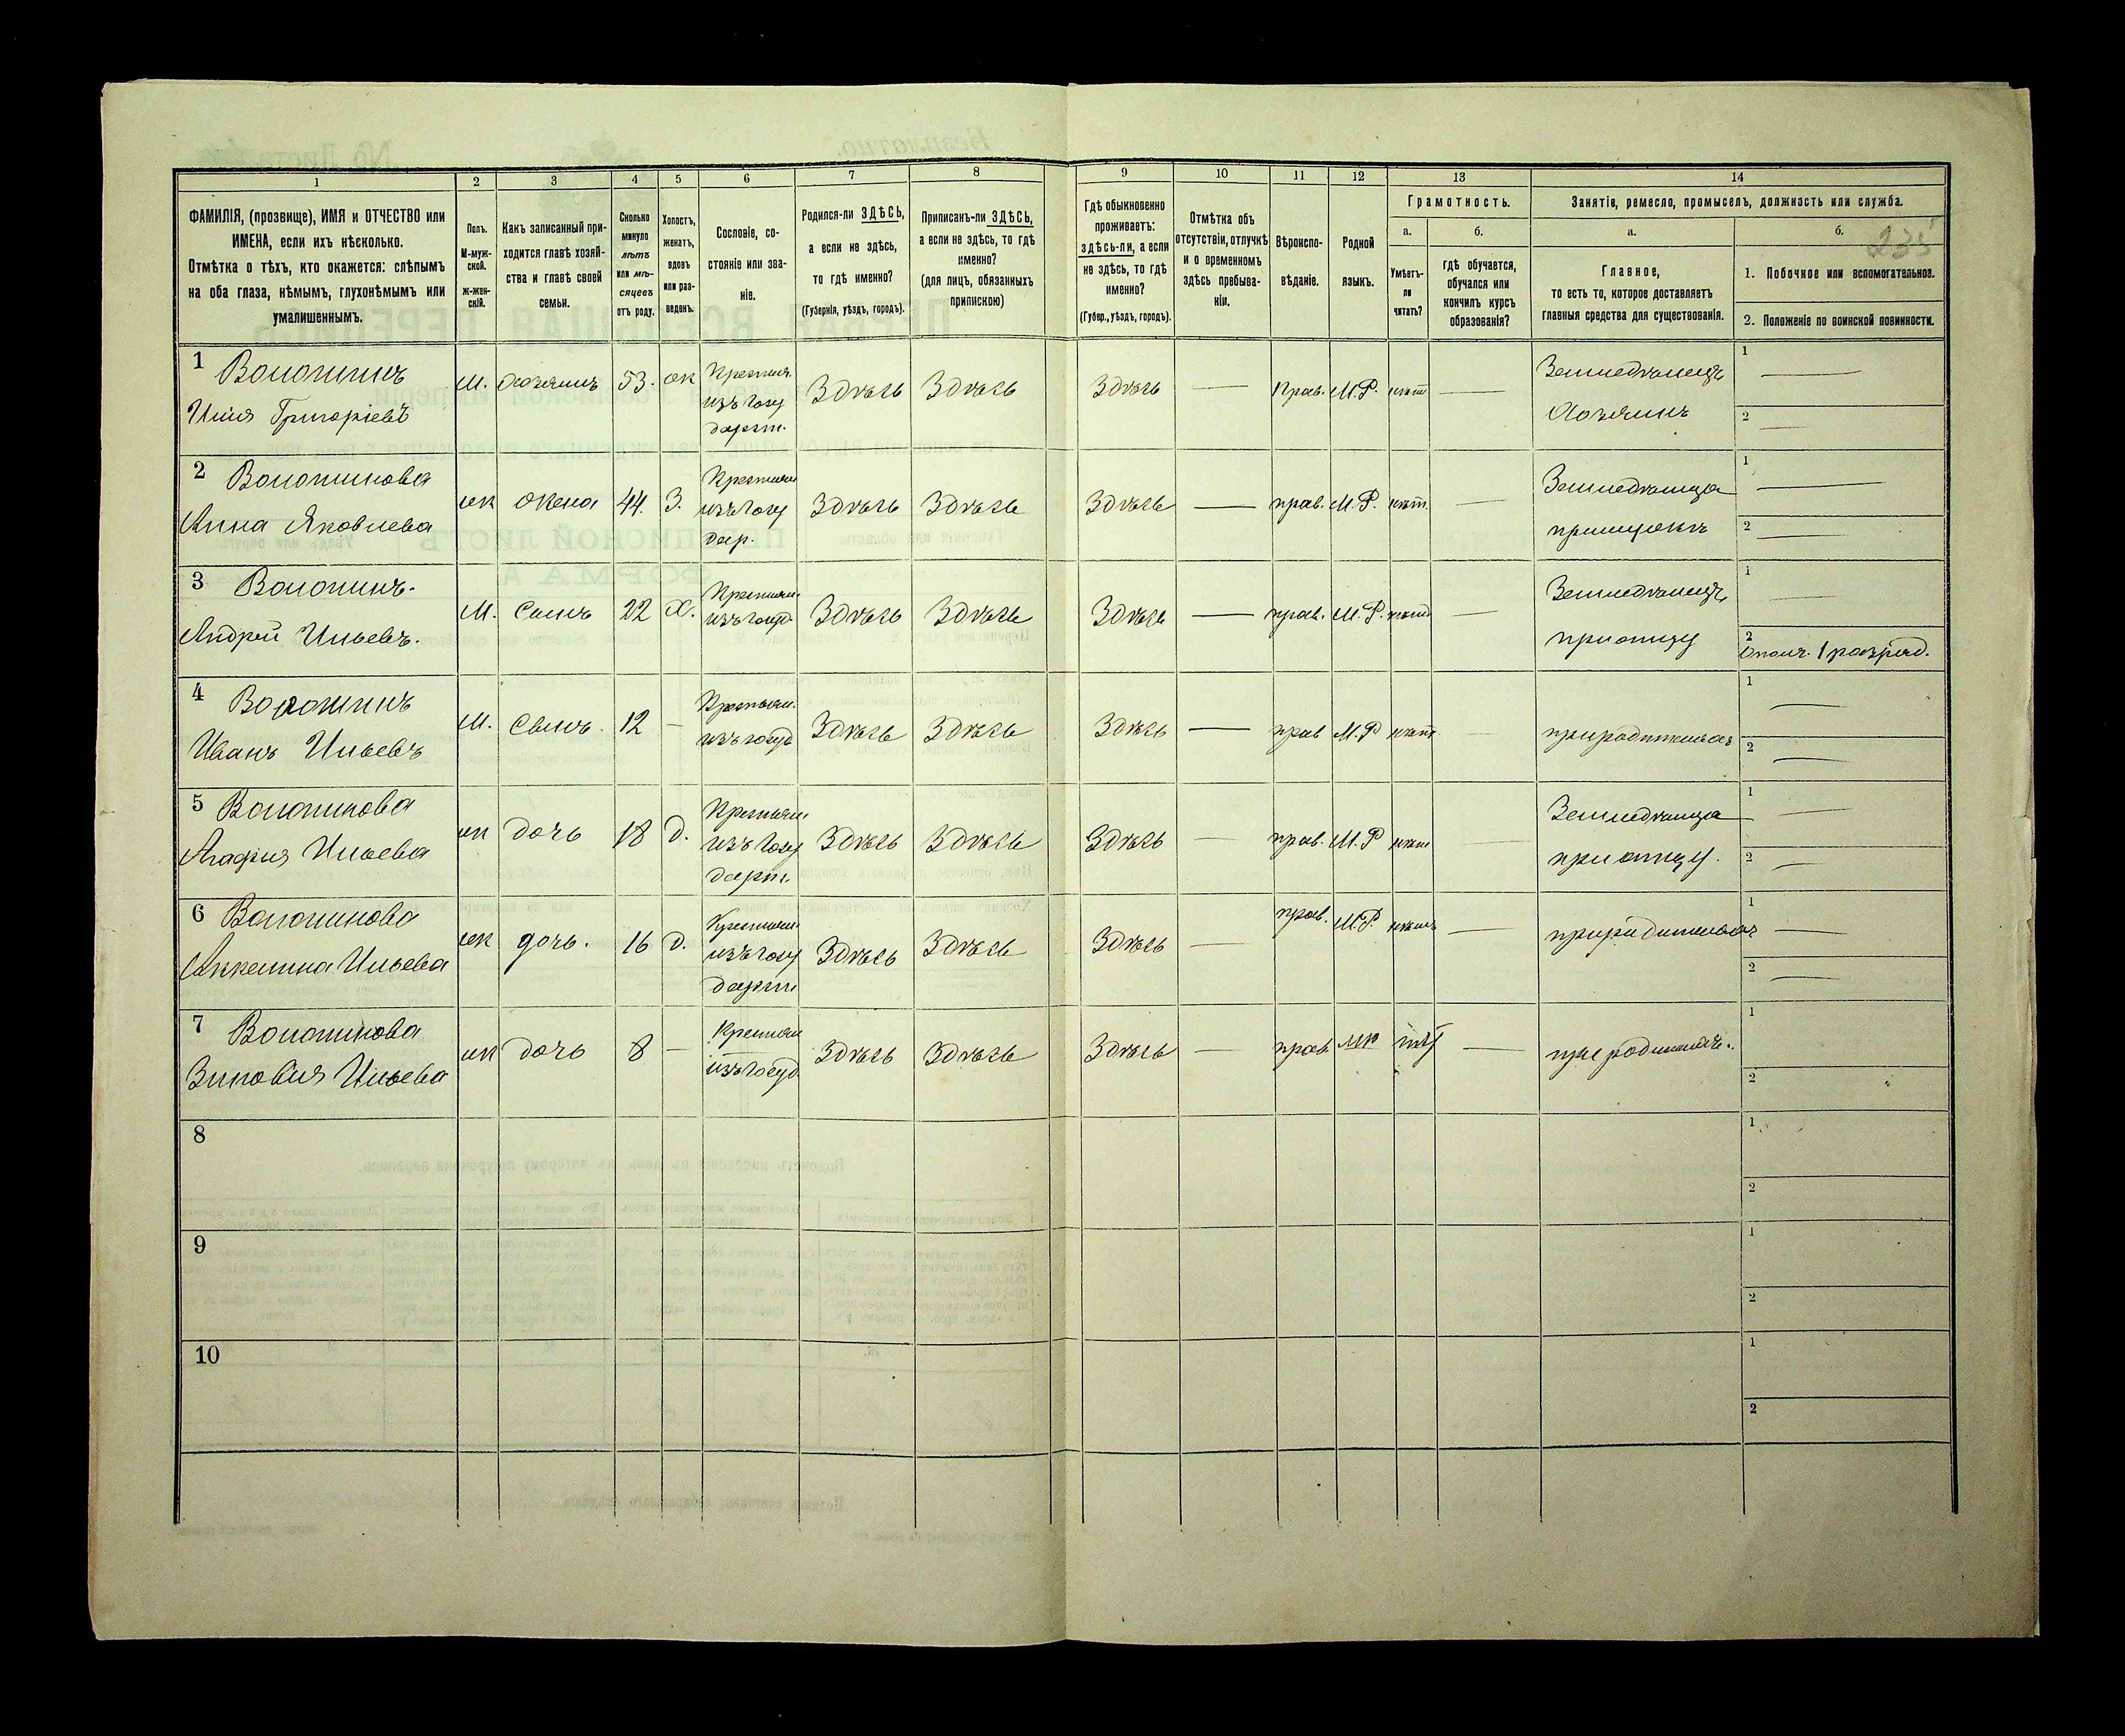 1 2 3 4 5 6 7 8 9 10 11 12 13 14
ФАМИЛІЯ, (прозвище), ИМЯ и ОТЧЕСТВО или
ИМЕНА, если ихъ нѣсколько.
Отмѣтка о тѣхъ, кто окажется: слѣпымъ
на оба глаза, нѣмымъ, глухонѣмымъ или
умалишеннымъ.
Полъ.
М-муж-
ской.
ж-жен-
скій.
Какъ записанный при-
ходится главѣ хозяй-
ства и главѣ своей
семьи.
Сколько
минуло
лѣтъ
или мѣ-
сяцевъ
отъ роду.
Холостъ,
женатъ,
вдовъ
или раз-
веденъ.
Сословіе, со-
стояніе или зва-
ніе.
Родился-ли ЗДѢСЬ,
а если не здѣсь,
то гдѣ именно?
(Губернія, уѣздъ, городъ).
Приписанъ-ли ЗДѢСЬ,
а если не здѣсь, то гдѣ
именно?
(для лицъ, обязанныхъ
припискою)
Гдѣ обыкновенно
проживаетъ:
здѣсь-ли, а если
не здѣсь, то гдѣ
именно?
(Губер., уѣздъ, городъ).
Отмѣтка объ
отсутствіи, отлучкѣ
и о временномъ
здѣсь пребыва-
ніи.
Вѣроиспо-
вѣданіе.
Родной
языкъ.
Грамотность.
а.
Умѣетъ-
ли
читать?
б.
гдѣ обучается,
обучался или
кончилъ курсъ
образованія?
Занятіе, ремесло, промыселъ, должность или служба.
а.
Главное,
то есть то, которое доставляетъ
главныя средства для существованія.
б.
235
1. Побочное или вспомогательное.
2. Положеніе по воинской повинности.
1 Волошинъ
Илія Григоріевъ
м. Хозяинъ 53. ж
Крестьян.
изъ Госу
дарст.
Здѣсь Здѣсь Здѣсь — Прав. М.Р. нѣт —
Земледѣлецъ
Хозяинъ
1 —
2 —
2 Волошинова
Анна Яковлева
ж жена 44. З.
Крестьян
изъ Госу
дар.
Здѣсь Здѣсь Здѣсь — прав. М.Р. нѣт. —
Земледѣлица
1 —
2 —
3 Волошинъ.
Андрей Ильевъ.
М. Сынъ 22 Х.
Крестьян.
изъ Госуд.
Здѣсь Здѣсь Здѣсь — прав. М.Р. —
Земледѣлецъ
при отцу
1 —
2 Ополч. 1 разряд.
4 Волошинъ
Иванъ Ильевъ
М. Сынъ. 12 —
Крестьян.
изъ госуд
Здѣсь Здѣсь Здѣсь — прав М.Р нѣт —
при родителях
1 —
2 —
5 Волошинова
Агафия Ильева
ж дочь 18 д.
Крестьян.
изъ Госу
дарст.
Здѣсь Здѣсь Здѣсь — прав. М.Р нѣт —
Земледѣлица
при отцу.
1 —
2 —
6 Волошинова
Аккелина Ильева
ж дочь. 16 д.
Крестьян.
изъ Госу
дарст
Здѣсь Здѣсь Здѣсь — прав. М.Р. нѣтъ —
при родителях
1 —
2 —
7 Волошинова
Зиновия Ильева
ж дочь 8 —
Крестьян
изъ Госуд
Здѣсь Здѣсь Здѣсь — прав мр —
при родителях.
1
2
8
1
2
9
1
2
10
1
2